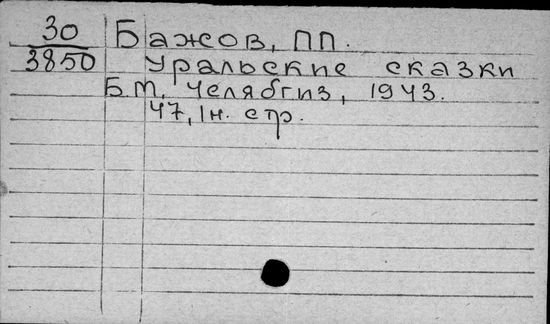 30 Бажов, ПП.
3850 Уральские сказки
Б.М, Челябгиз, 1943.
47, 1н. стр.